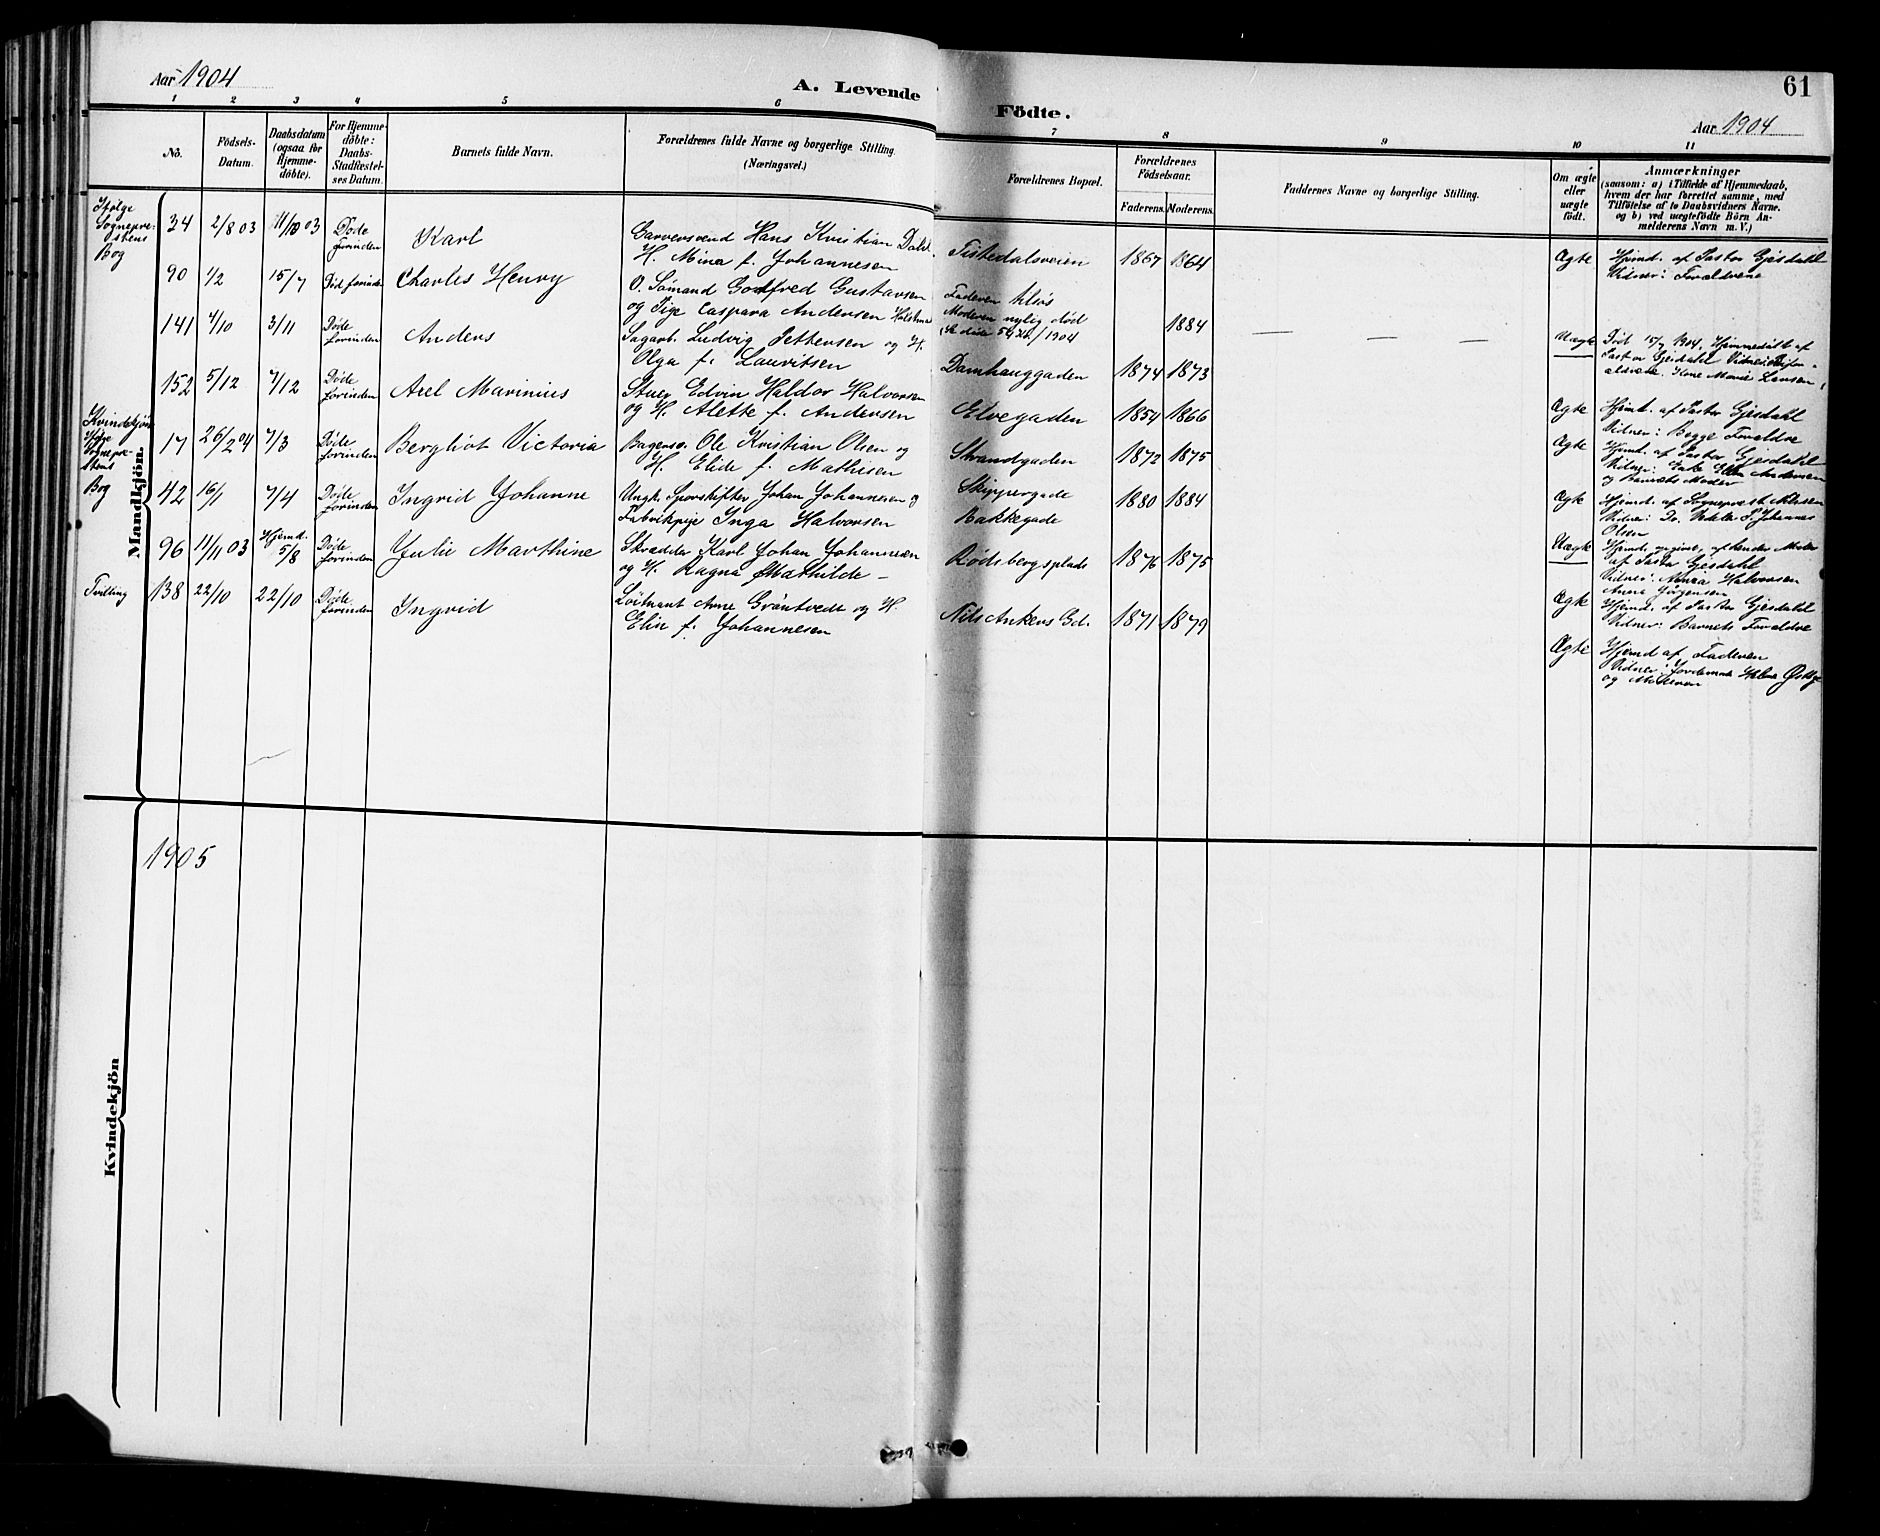 Aar 1904
A. Levende Födte.
61
Aar 1904
1 2 3 4 5 6 7 8 9 10 11
No.
Födsels-Datum.
Daabsdatum (ogsaa for Hjemme-döbte).
For Hjemme-döbte: Daabs-Stadfæstel-ses Datum.
Barnets fulde Navn.
Forældrenes fulde Navne og borgerlige Stilling.
(Næringsvei.)
Forældrenes Bopæl.
Forældrenes Födselsaar.
Faderens. Moderens.
Faddernes Navne og borgerlige Stilling.
Om ægte eller uægte födt.
Anmærkninger
(saasom: a) i Tilfælde af Hjemmedaab,
hvem der har forrettet samme, med
Tilföielse af to Daabsvidners Navne.
og b) ved uægtefödte Börn An-
melderens Navn m. V.)
Ifølge
Sognepre-
stens
Bog
34 2/8 03 11/10 03 Døde forinden Karl Garversvend Hans Kristian Dahl
H. Mina f. Johannesen Tistedalsveien 1867 1864 Ægte Hjemd. af Pastor Gjesdahl
Vidner: Forældrene
90 1/2 15/7 Død forinden Charles Henry O. Sömand Godtfred Gustavsen
og Pige Caspara Andersen Faderen
Moderen nylig död 1884 Uægte Död 15/7 1904. Hjemmedöbt af
Pastor Gjesdahl
Kone Marie Larsen
141 4/10 3/11 Døde forinden Anders Sagarb. Ludvig Pettersen og H.
Olga f. Lauritsen Damhauggaden 1874 1873 Ægte Hjemt. af Pastor Gjesdahl
Vidner: Begge Forældre
152 5/12 7/12 Døde forinden Axel Marinius Stuer Edvin Haldor Halvorsen
og H. Alette f. Andersen Elvegaden 1854 1866 Ægte Hjemt. af Pastor Gjesdahl
Vidner: Enke Andersen
og Barnets Moder
Kvindekjön
Ifølge
Sognepre-
stens
Bog
17 26/2 04 7/3 Døde forinden Bergliot Victoria Bagersv. Ole Kristian Olsen og
H. Elide f. Mathisen Strandgaden 1872 1875 Ægte Hjemd. af Sogneprest
Olsen
42 16/1 7/4 Døde forinden Ingrid Johanne Ungk. Sporskifter Johan Johannesen og
Fabrikpige Inga Halvorsen Skippergade
Bakkegade 1880 1884 Uægte Hjemd.
af Pastor Gjesdahl
Vidner: Halvorsen
Anne Jörgensen
96 11/11 03 Hjemd. 5/8 Døde forinden Julie Marthine Skrædder Karl Johan Johannesen
og H. Ragna Mathilde – Rødsbergsplads 1876 1875 Ægte Hjemd. af Pastor Gjesdahl
Vidner: Barnets Forældre
Tvilling 138 22/10 22/10 Døde forinden Ingrid Löitnant Arne Gröntvedt og H.
Elin f. Johannesen Nils Ankers Gd. 1871 1879 Ægte Hjemd af Faderen
Vidner: Jordemor
og Moderen
Mandkjön.
1905
Kvindekjön